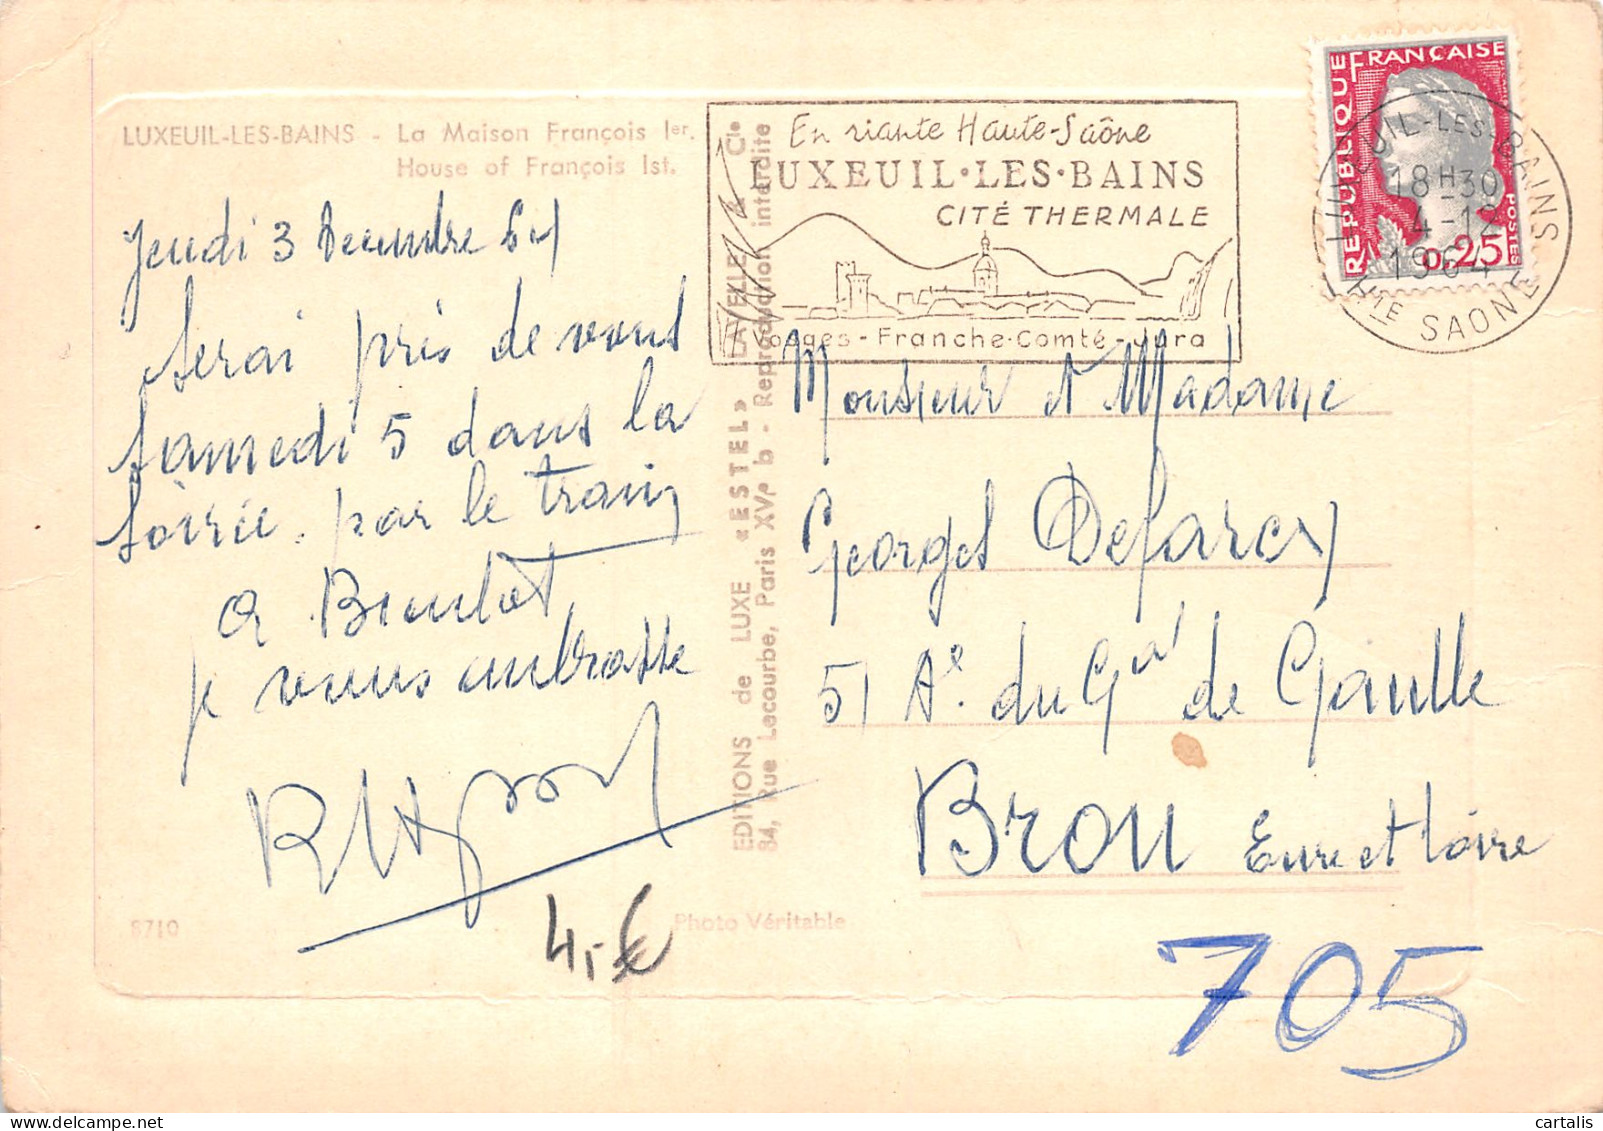 LUXEUIL-LES-BAINS - La Maison François Ier.
House of François Ist.
Jeudi 3 Decembre 64
Serai près de vous
Samedi 5 dans la
Soirée. par le train
a Bientot
je vous embrasse
8710
Photo Véritable
4,-€
EDITIONS de LUXE «ESTEL» LAVELLE & Cie
84, Rue Lecourbe, Paris XVe b - Reproduction interdite
En riante Haute-Saône
LUXEUIL·LES·BAINS
CITÉ THERMALE
Vosges - Franche-Comté - Jura
RÉPUBLIQUE FRANÇAISE
POSTES
0,25
LUXEUIL-LES-BAINS
18H30
4-12
1964
HTE SAONE
Monsieur et Madame
Georges Defarcy
51 Ae. du Gal de Gaulle
Brou Eure et Loire
705
cartalis
delcampe.net